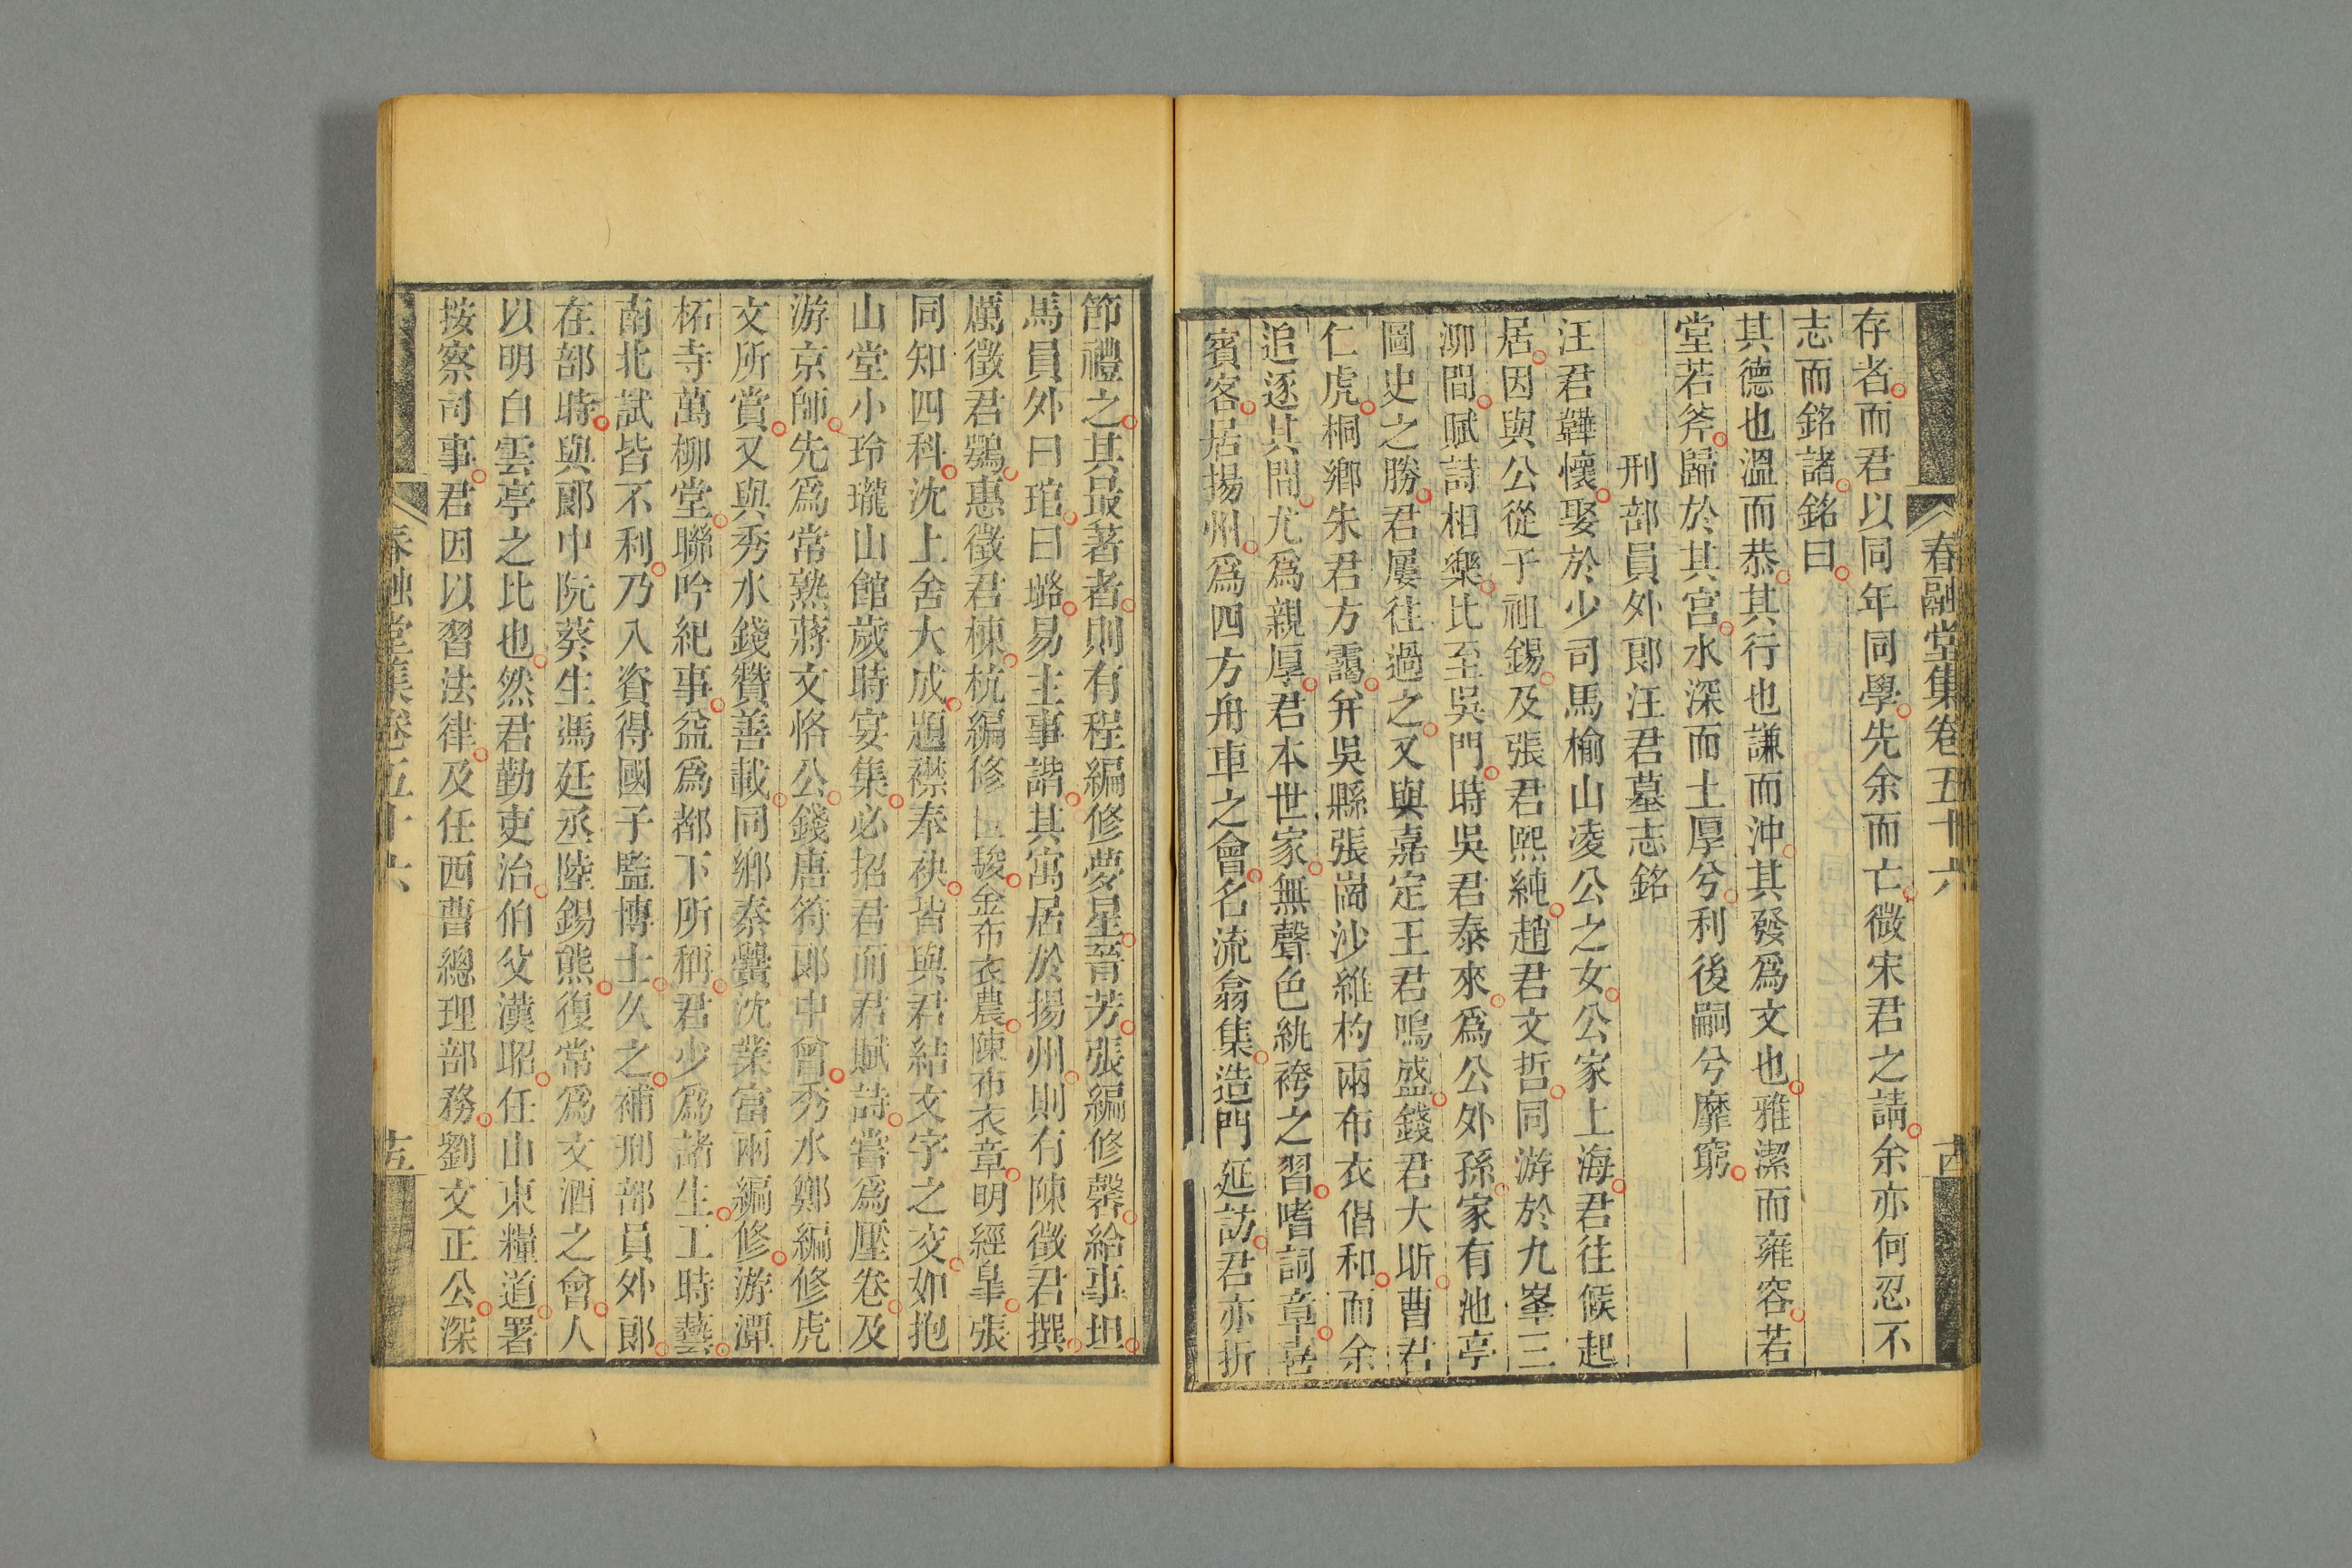 春融堂集卷五十六
存者而君以同年同學先余而亡微宋君之請余亦何忍不
志而銘諸銘曰
其德也溫而恭其行也謙而沖其發爲文也雅潔而雍容若
堂若斧歸於其宮水深而土厚兮利後嗣兮靡窮
刑部員外郎汪君墓志銘
汪君韡懷娶於少司馬榆山凌公之女公家上海君往候起
居因與公從子祖錫及張君熙純趙君文哲同游於九峯三
泖間賦詩相樂比至吳門時吳君泰來爲公外孫家有池亭
圖史之勝君屢往過之又與嘉定王君鳴盛錢君大昕曹君
仁虎桐鄉朱君方靄幷吳縣張崗沙維杓兩布衣倡和而余
追逐其間尤爲親厚君本世家無聲色絖袴之習嗜詞章喜
賓客居揚州爲四方舟車之會名流翕集造門延訪君亦折
節禮之其最著者則有程編修夢星晉芳張編修馨給事坦
馬員外曰琯曰璐易主事諧其寓居於揚州則有陳徵君撰
厲徵君鶚惠徵君棟杭編修世駿金布衣農陳布衣章明經臯張
同知四科沈上舍大成題襟奉袂皆與君結文字之交如抱
山堂小玲瓏山館歲時宴集必招君而君賦詩嘗爲壓卷及
游京師先爲常熟蔣文恪公錢唐符郎中曾秀水鄭編修虎
文所賞又與秀水錢贊善載同鄉秦黌沈業富兩編修游潭
柘寺萬柳堂聯吟紀事益爲都下所稱君少爲諸生工時藝
南北試皆不利乃入資得國子監博士久之補刑部員外郎
在部時與郎中阮葵生馮廷丞陸錫熊復常爲文酒之會人
以明白雲亭之比也然君勤吏治伯父漢昭任山東糧道署
按察司事君因以習法律及任西曹總理部務劉文正公深
春融堂集卷五十六